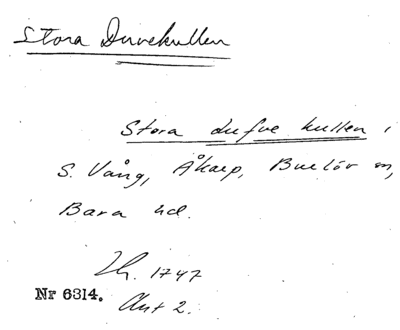 Stora Duvekullen
Stora dufve kullen i
S. Vång, Åkarp, Burlöv sn,
Bara hd.
Lh. 1747
Nr 6314. Akt 2.